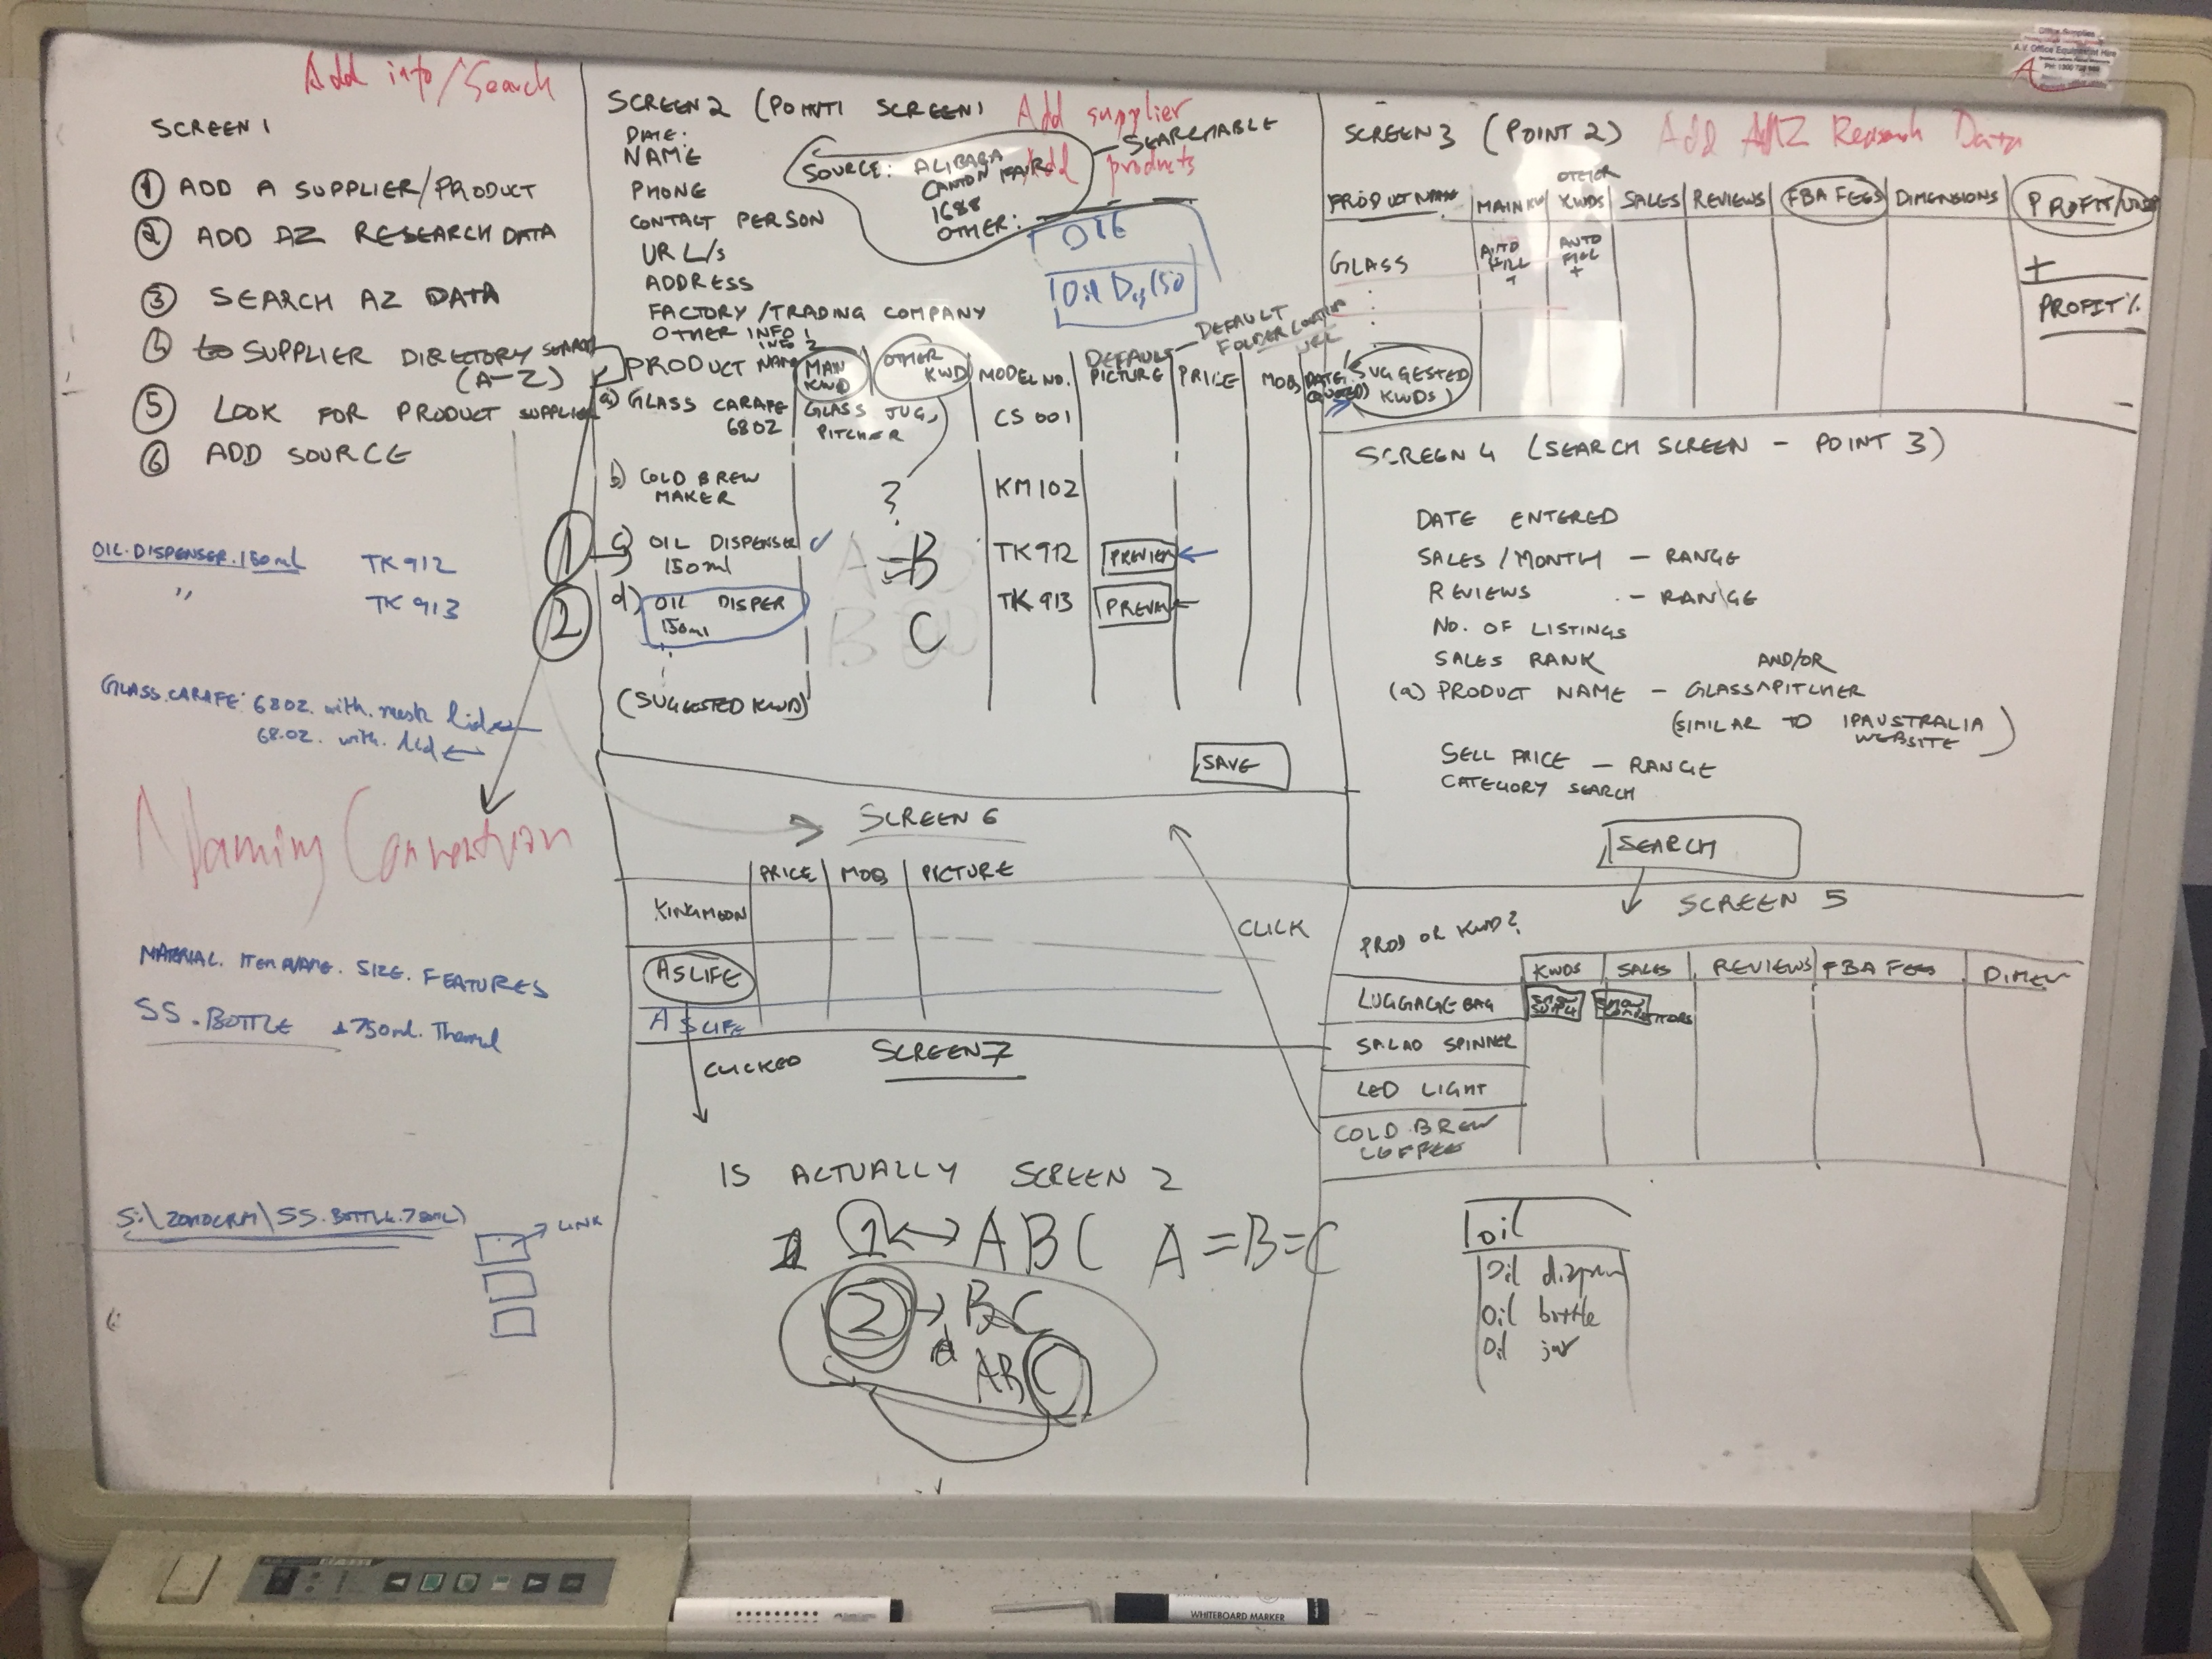 Add info/Search
SCREEN 1
① ADD A SUPPLIER/PRODUCT
② ADD AZ RESEARCH DATA
③ SEARCH AZ DATA
SUPPLIER DIRECTORY SEARCH
(A-Z)
⑤ LOOK FOR PRODUCT SUPPLIER
⑥ ADD SOURCE
OIL.DISPENSER.150ml TK912
" TK 913
GLASS.CARAFE: 68OZ. with.mesh lid
68.OZ. with.lid
Naming Convention
MATERIAL. ITEM NAME. SIZE. FEATURES
SS.BOTTLE 750ml. Thermal
S:\ZOHOCRM\SS.BOTTLE.750ML)
LINK
SCREEN 2 (POINT 1 SCREEN)
Add supplier
Add products
DATE:
NAME
PHONE
CONTACT PERSON
URL/s
ADDRESS
FACTORY/TRADING COMPANY
OTHER INFO 1
INFO 2
SOURCE: ALIBABA
CANTON FAIR
1688
OTHER:
SEARCHABLE
Oil
DEFAULT
FOLDER LOCATION
URL
PRODUCT NAME MAIN KWD OTHER KWD MODEL NO. DEFAULT PICTURE PRICE MOQ DATE (QUOTED)
a) GLASS CARAFE GLASS JUG, CS 001
68OZ PITCHER
b) COLD BREW KM102
MAKER
?
1 c) OIL DISPENSER =B TK 912 PREVIEW
150ml
2 d) OIL DISPER C TK 913 PREVIEW
150ml
(SUGGESTED KWD)
SAVE
SCREEN 6
PRICE MOQ PICTURE
KINGMOON
ASLIFE
ASLIFE
CLICKED
SCREEN 7
IS ACTUALLY SCREEN 2
1 ↔ ABC A=B=C
2 → BC
ABC
SCREEN 3 (POINT 2)
Add AMZ Research Data
PRODUCT NAME MAIN KW OTHER KWDS SALES REVIEWS FBA FEES DIMENSIONS PROFIT/UNIT
GLASS AUTO FILL + AUTO FILL + +
PROFIT %
(SUGGESTED
KWDS)
SCREEN 4 (SEARCH SCREEN - POINT 3)
DATE ENTERED
SALES/MONTH - RANGE
REVIEWS - RANGE
NO. OF LISTINGS
SALES RANK AND/OR
(a) PRODUCT NAME - GLASS^PITCHER
(SIMILAR TO IPAUSTRALIA
WEBSITE)
SELL PRICE - RANGE
CATEGORY SEARCH
SEARCH
SCREEN 5
CLICK
PROD OR KWD?
KWDS SALES REVIEWS FBA FEES DIMEN
LUGGAGE BAG SHOW
SALAD SPINNER
LED LIGHT
COLD BREW
COFFEE
oil
Oil
Oil bottle
Oil jar
WHITEBOARD MARKER
Office Supplies
A.V Office Equipment Hire